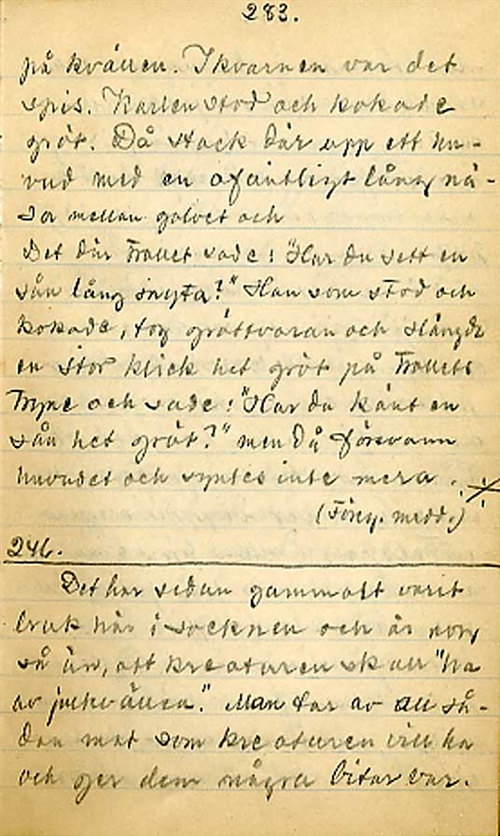 283.
på kvällen. I kvarnen var det
spis. Karlen stod och kokade
gröt. Då stack där upp ett hu-
vud med en ofantligt lång nä-
sa mellan golvet och
Det där trollet sade: "Har du sett en
sån lång snyta?" Han som stod och
kokade, tog gröttvaran och slängde
en stor klick het gröt på trollets
tryne och sade: "Har du känt en
sån het gröt?" men då försvann
huvudet och syntes inte mera.
(Föreg. medd.)
246.
Det har sedan gammalt varit
bruk här i socknen och är nog
så än, att kreaturen skall "ha
av julkvällen." Man tar av all så-
dan mat som kreaturen vill ha
och ger dem några bitar var.